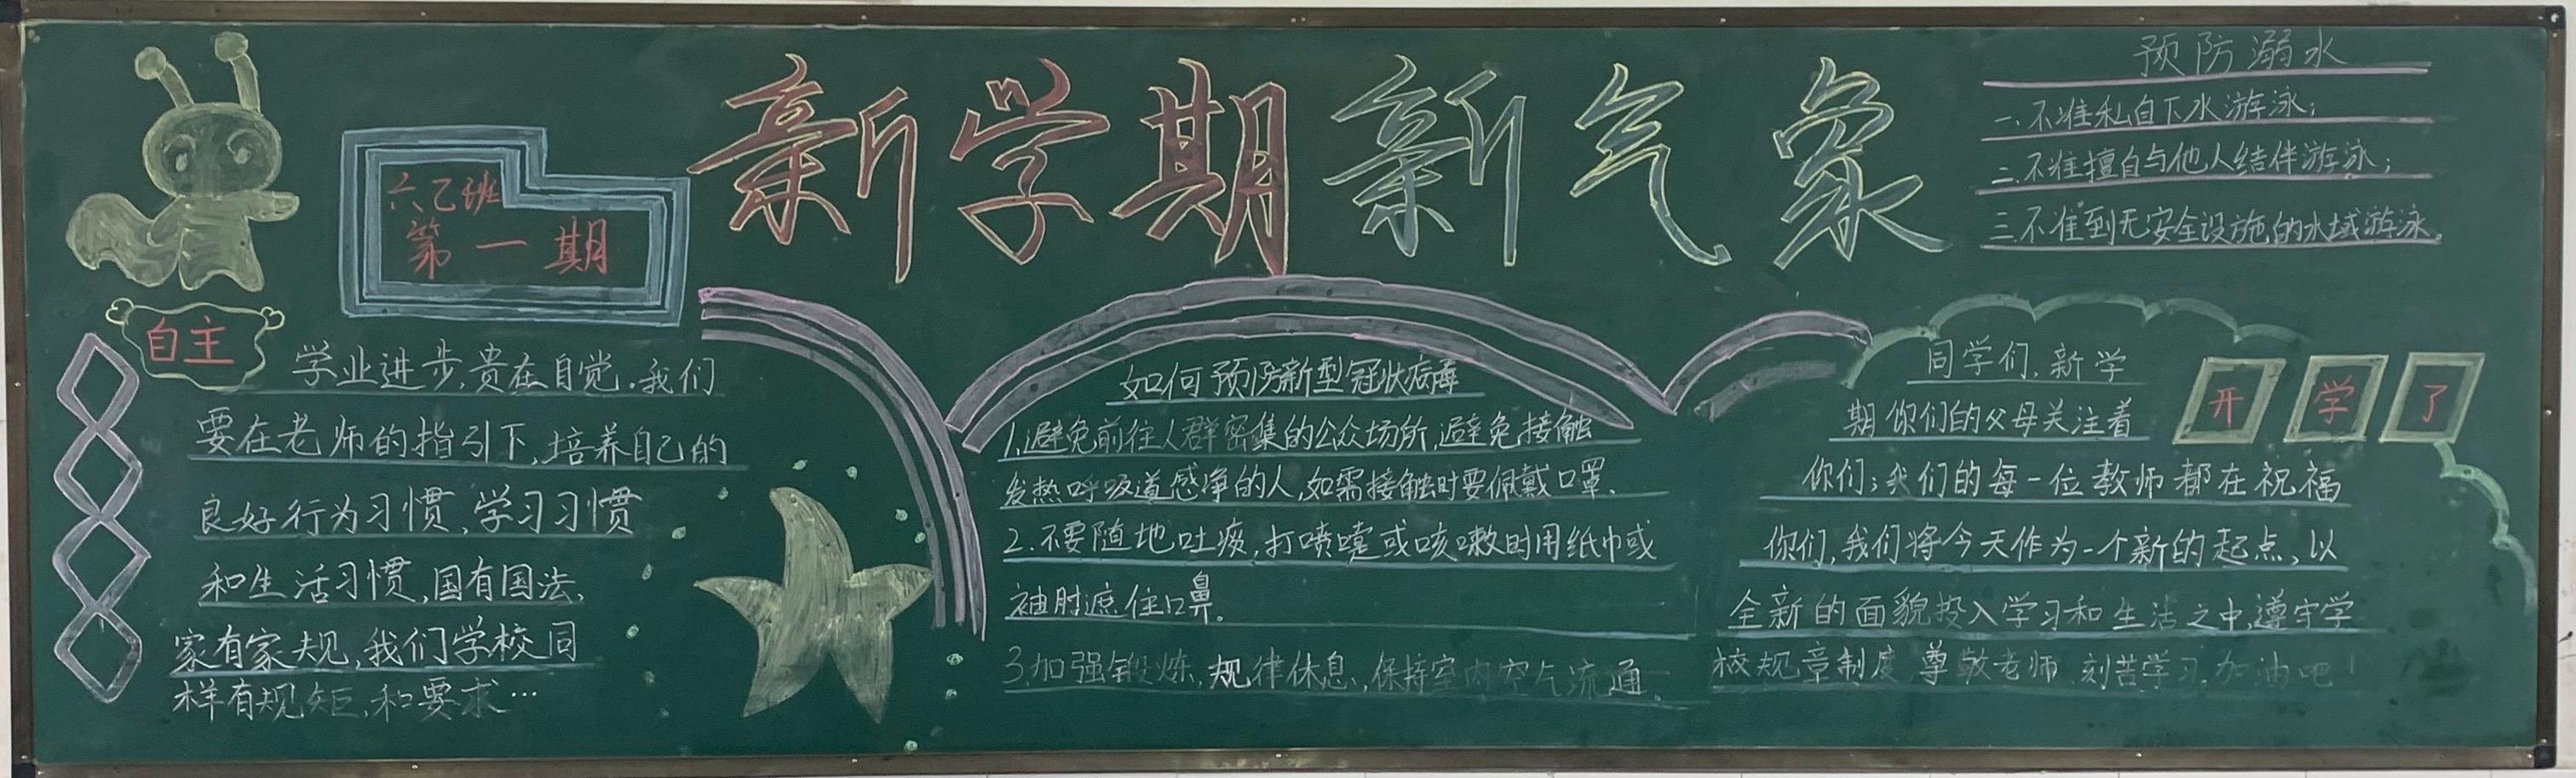 新学期新气象
六乙班
第一期
自主
学业进步,贵在自觉.我们
要在老师的指引下,培养自己的
良好行为习惯,学习习惯
和生活习惯,国有国法,
家有家规,我们学校同
样有规矩,和要求…
如何预防新型冠状病毒
1.避免前往人群密集的公众场所,避免接触
发热呼吸道感染的人,如需接触时要佩戴口罩.
2.不要随地吐痰,打喷嚏或咳嗽时用纸巾或
袖肘遮住口鼻。
3.加强锻炼,规律休息,保持室内空气流通.
预防溺水
一.不准私自下水游泳;
二.不准擅自与他人结伴游泳;
三.不准到无安全设施的水域游泳。
开学了
同学们,新学
期你们的父母关注着
你们;我们的每一位教师都在祝福
你们,我们将今天作为一个新的起点,以
全新的面貌投入学习和生活之中,遵守学
校规章制度 尊敬老师 刻苦学习.加油吧!